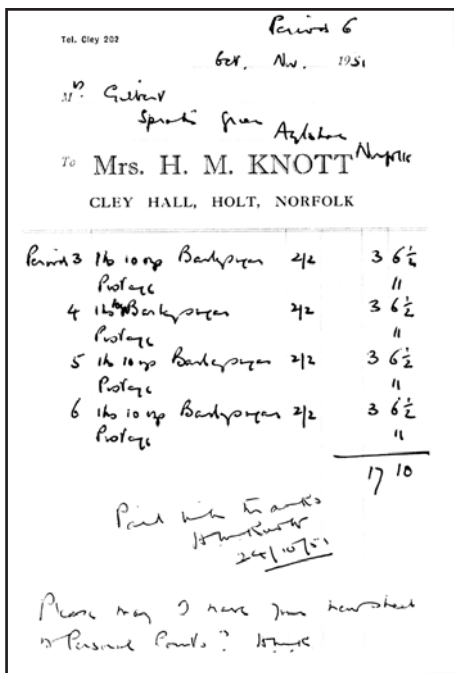 Period 6
Tel. Cley 202
Oct. Nov. 1951
Mrs. Gilbert
Green
Norfolk
To Mrs. H. M. KNOTT
CLEY HALL, HOLT, NORFOLK
Period 3 1 lb 10 oz Barleysugar 2/2 3 6½
Postage 11
4 1 lb Barleysugar 2/2 3 6½
Postage 11
5 1 lb 10 oz Barleysugar 2/2 3 6½
Postage 11
6 1 lb 10 oz Barleysugar 2/2 3 6½
Postage 11
17 10
Paid with thanks
HMKnott
24/10/51
Please may I have your new sheet
of Personal Points? HMK